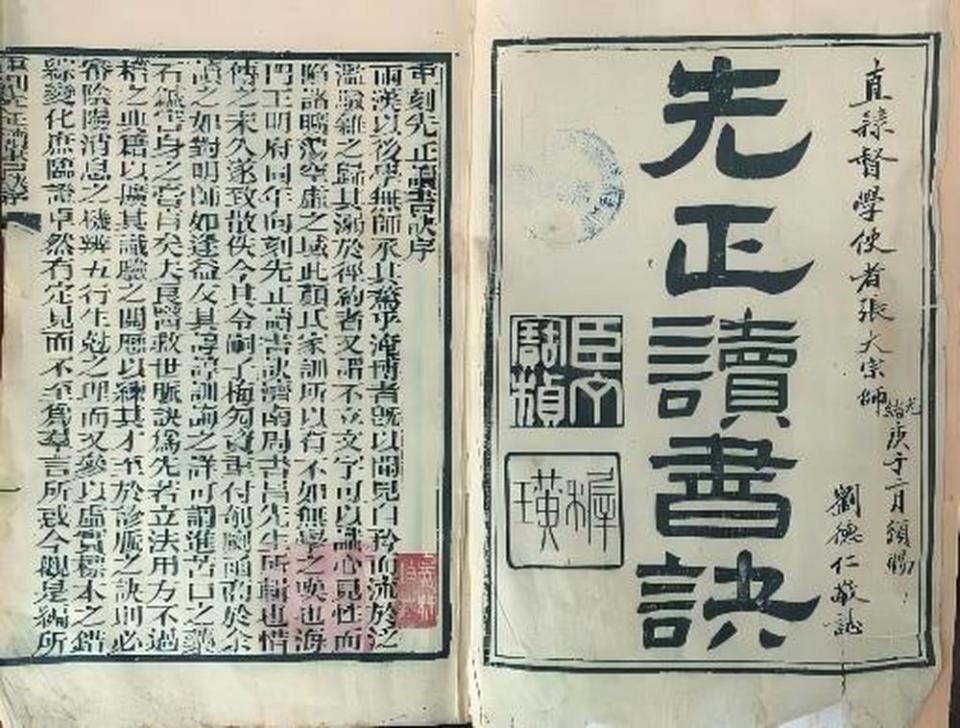 直隸督學使者張大宗師
光緒庚子二月頒賜
劉德仁敬誌
先正讀書訣
重刻先正讀書訣序
兩漢以後學無師承其騖乎淹博者旣以聞見自矜而流於泛
濫駁雜之歸其溺於徑約者又謂不立文字可以識心見性而
陷諸曠蕩空虛之域此顏氏家訓所以有不如無學之嘆也海
門王明府同年向刻先正讀書訣濟南周書昌先生所輯也惜
傳之未久遂致散佚今其令嗣子梅資重付剞劂而於余
讀之如對明師如逢益友其諄諄訓誨之詳可謂進苦口之藥
石無害身之膏肓矣夫良醫救世脈訣爲先若立法用方不過
稽之典籍以廣其識驗之閱歷以練其才至於診脈之訣則必
審陰陽消息之機辨五行生尅之理而又參以虛實標本之錯
綜變化庶臨證卓然有定見而不至爲羣言所惑今觀是編所
重刻先正讀書訣序